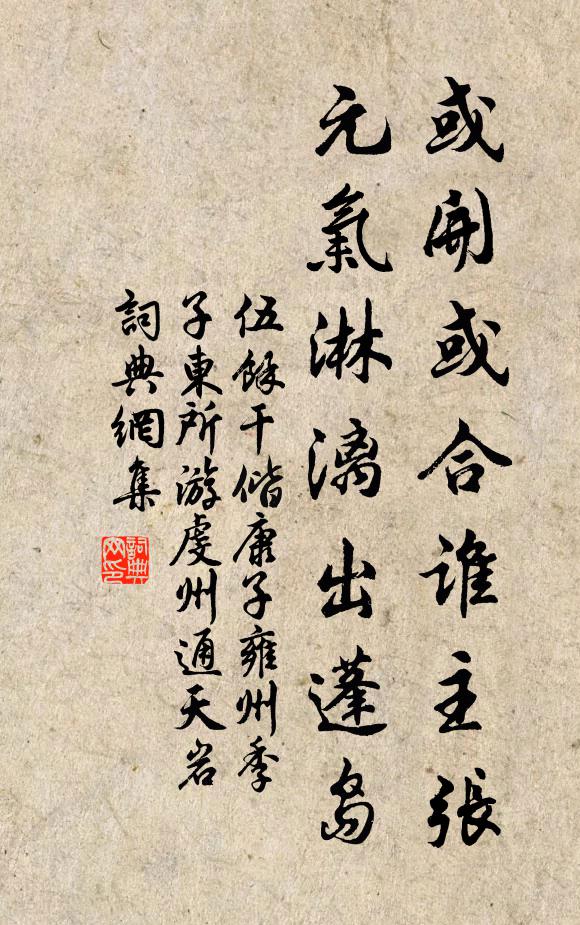 或開或合谁主張
元氣淋漓出蓬島
伍餘干偕康子雍州季
子東所游虔州通天岩
詞典網集
詞典网印